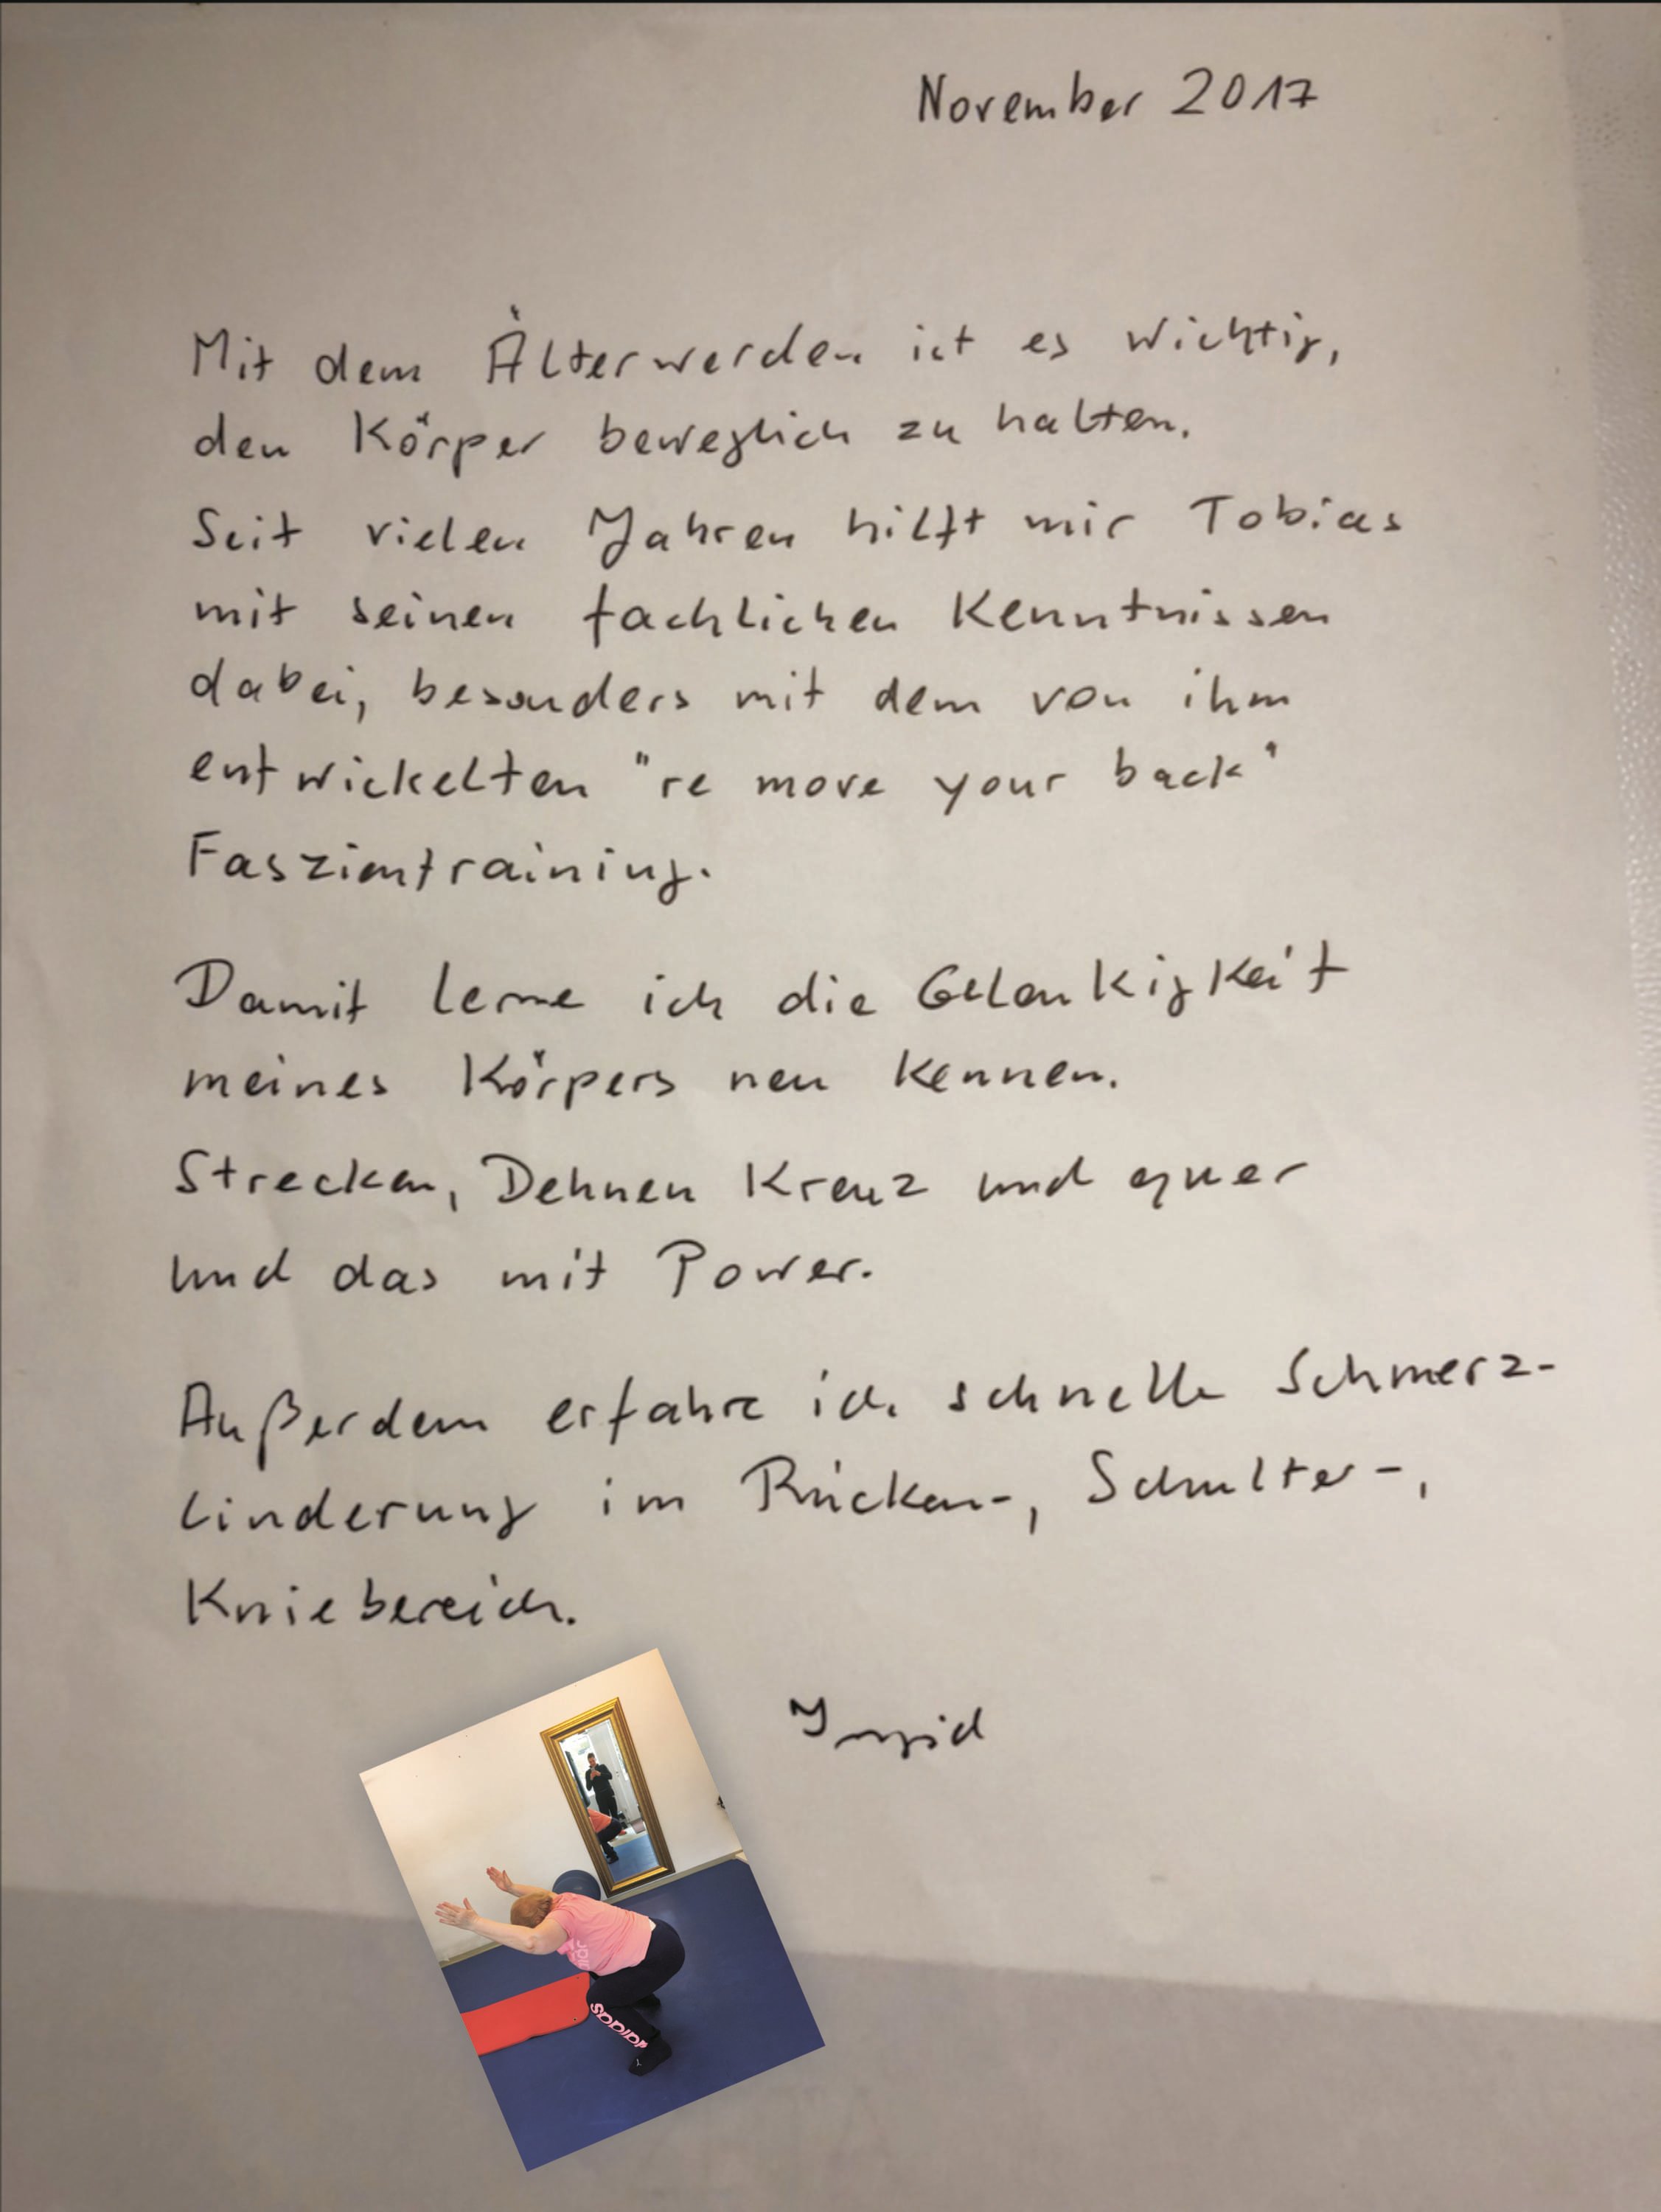 November 2017
Mit dem Älterwerden ist es wichtig,
den Körper beweglich zu halten.
Seit vielen Jahren hilft mir Tobias
mit seinen fachlichen Kenntnissen
dabei, besonders mit dem von ihm
entwickelten "re move your back"
Faszientraining.
Damit lerne ich die Gelenkigkeit
meines Körpers neu kennen.
Strecken, Dehnen Kreuz und quer
und das mit Power.
Außerdem erfahre ich schnelle Schmerz-
linderung im Rücken-, Schulter-,
Kniebereich.
Ingrid
adidas